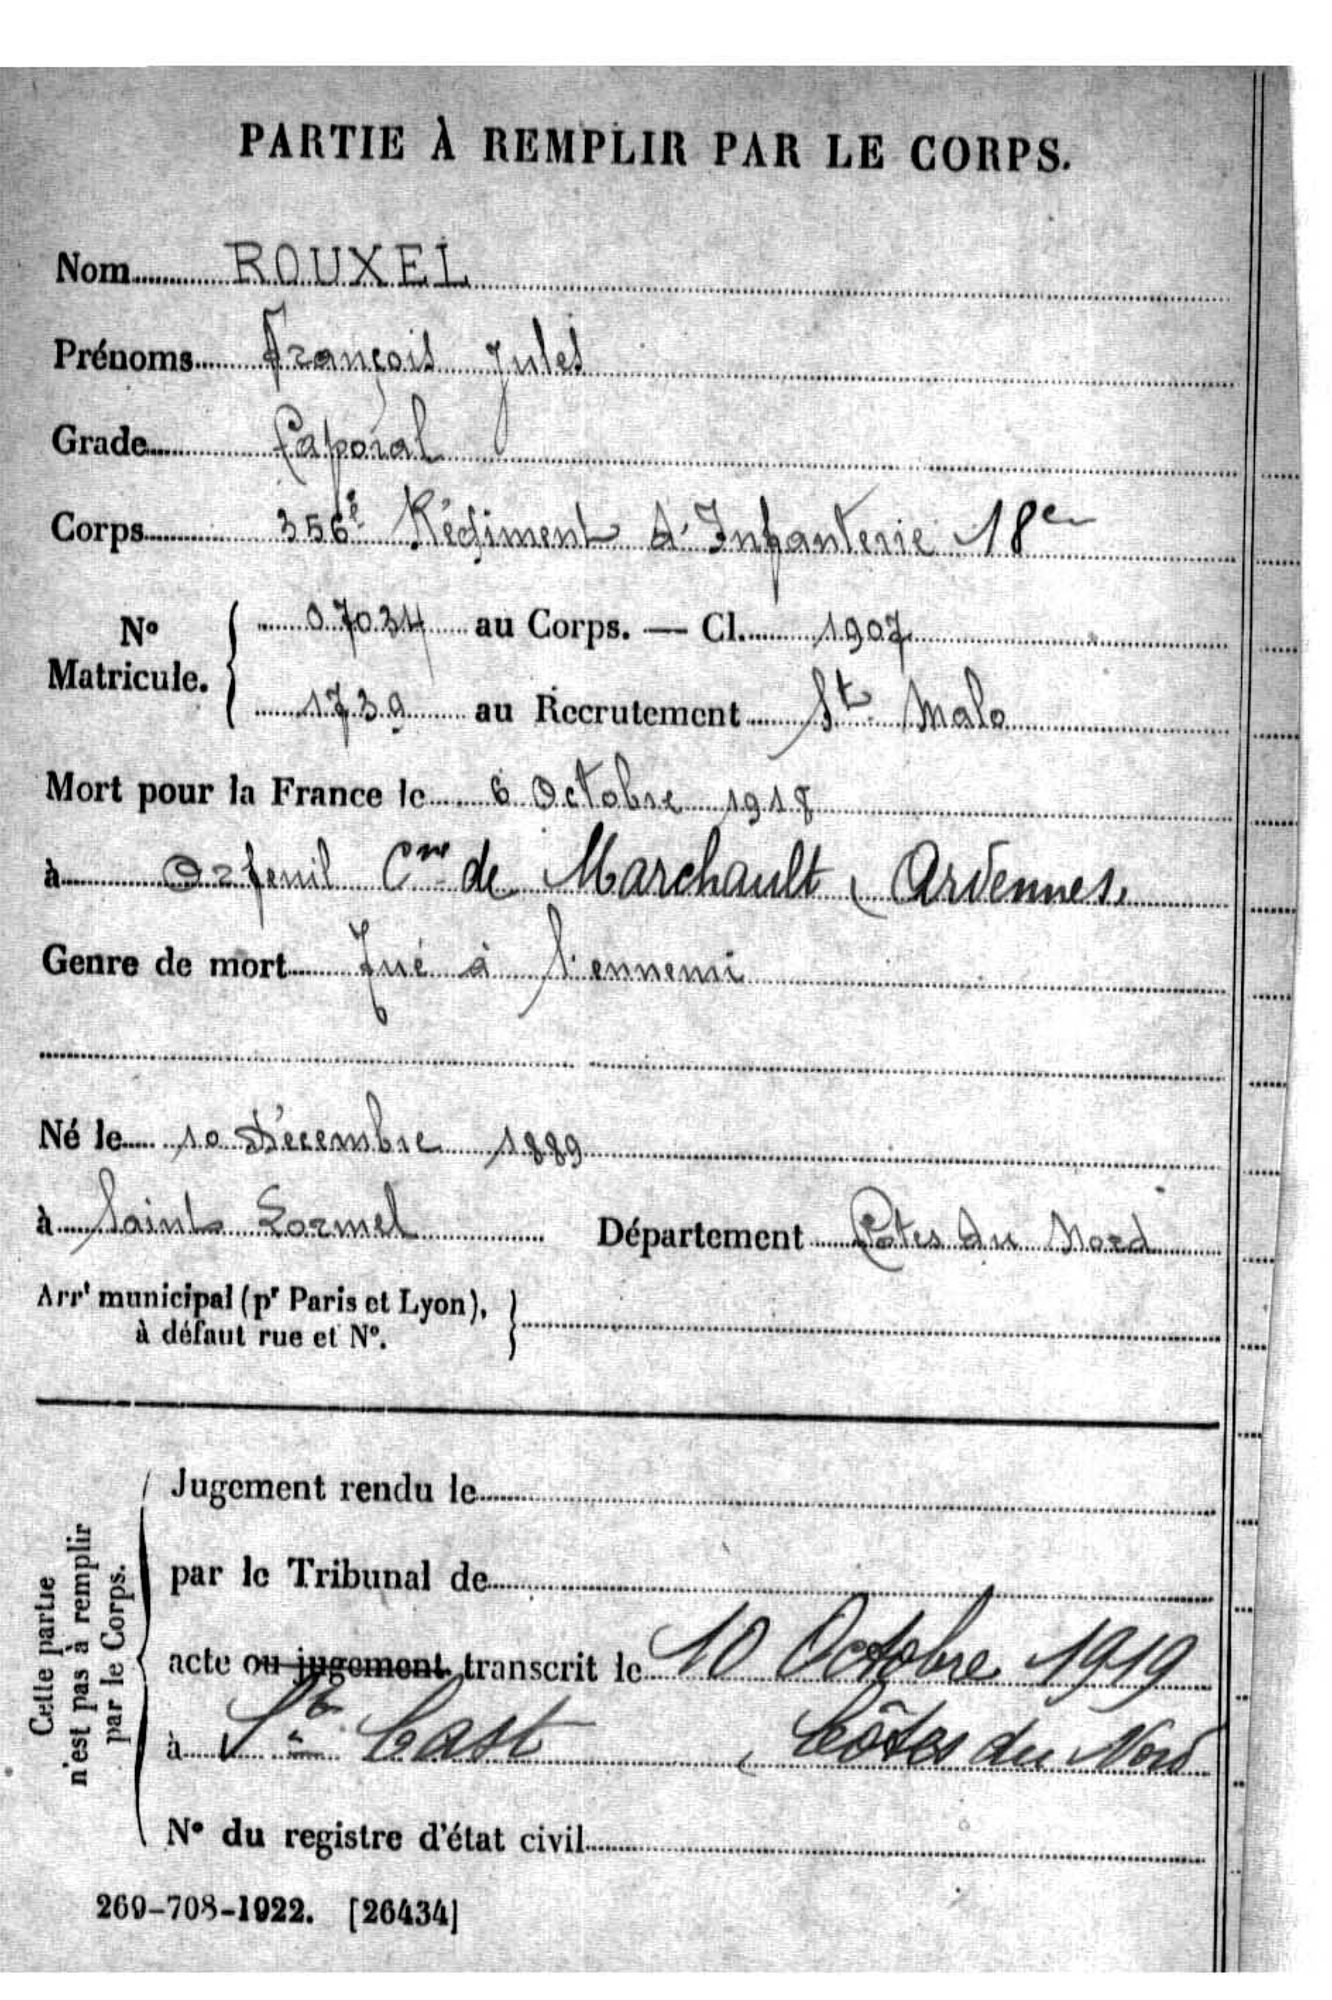 PARTIE À REMPLIR PAR LE CORPS.
Nom ROUXEL
Prénoms François Jules
Grade Caporal
Corps 356e Régiment d'Infanterie 18e
N° Matricule. 07034 au Corps. — Cl. 1907
1739 au Recrutement St Malo
Mort pour la France le 6 Octobre 1918
à Orfeuil Cne de Marchault, Ardennes,
Genre de mort Tué à l'ennemi
Né le 10 Décembre 1889
à Saint Lormel Département Côtes du Nord
Arrt municipal (pr Paris et Lyon),
à défaut rue et N°.
Cette partie
n'est pas à remplir
par le Corps.
Jugement rendu le
par le Tribunal de
acte ou jugement transcrit le 10 Octobre 1919
à St Cast, Côtes du Nord
N° du registre d'état civil
269-708-1922. [26434]